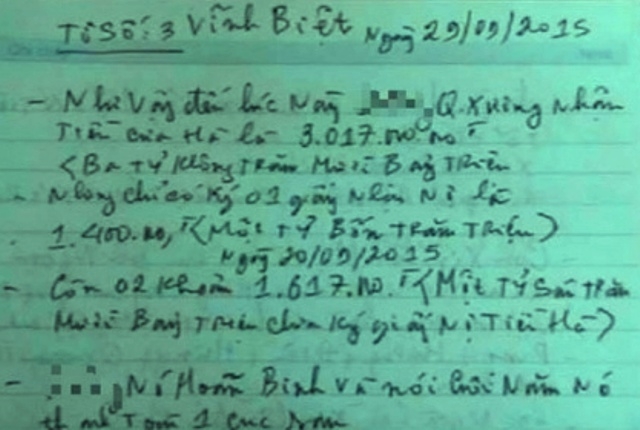 Tờ Số: 3 Vĩnh Biệt Ngày 29/09/2015
- Như Vậy đến lúc Này Q. Xưng Nhận
Tiền của Hà là 3.017.000.000đ
(Ba Tỷ Không Trăm Mười Bảy Triệu
Nhưng chỉ có Ký 01 giấy Nhận Nợ là
1.400.000, (Một Tỷ Bốn Trăm Triệu)
Ngày 20/09/2015
- Còn 02 Khoản 1.617.000. (Một Tỷ Sáu Trăm
Mười Bảy Triệu chưa Ký giấy Nợ Tiền Hà)
- Nó Hoãn Binh Và nói Cuối Năm Nó
1 cục